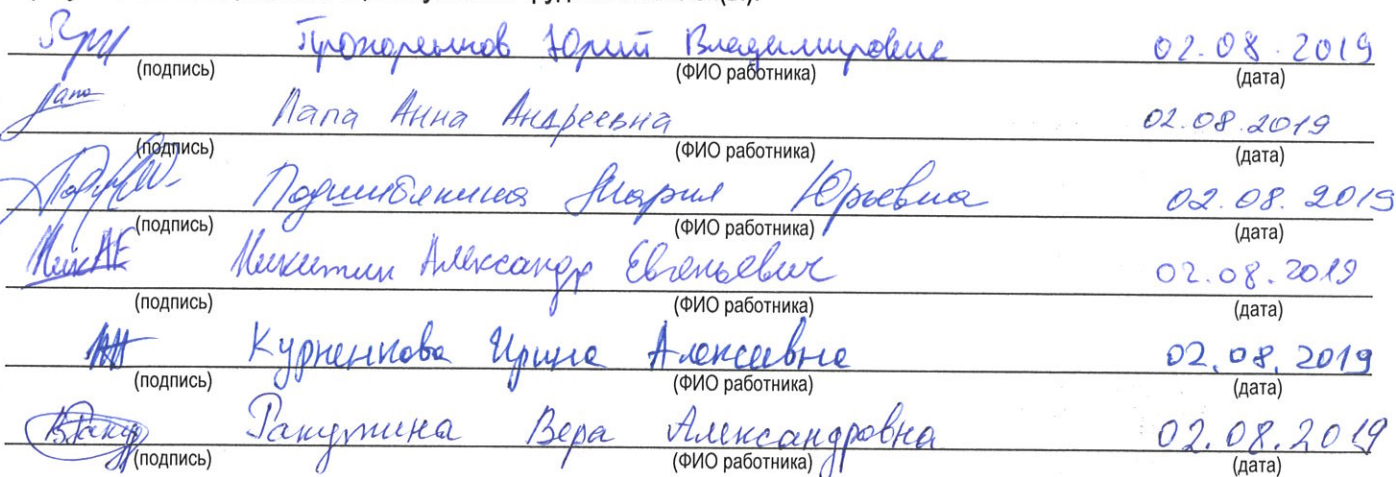 Юрий Владимирович 02.08.2019
(подпись) (ФИО работника) (дата)
Лапа Лапа Анна Андреевна 02.08.2019
(подпись) (ФИО работника) (дата)
Подшибякина Мария Юрьевна 02.08.2019
(подпись) (ФИО работника) (дата)
НикАЕ Никитин Александр Евгеньевич 02.08.2019
(подпись) (ФИО работника) (дата)
Курненкова Ирина Алексеевна 02.08.2019
(подпись) (ФИО работника) (дата)
Ракутина Вера Александровна 02.08.2019
(подпись) (ФИО работника) (дата)